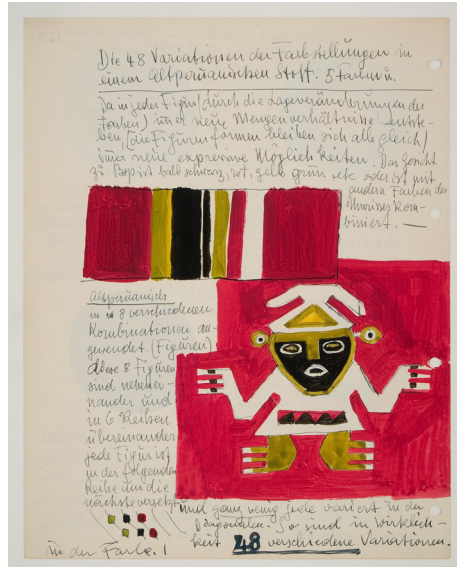 Die 48 Variationen der Farbstellungen in
einem altperuanischen Stoff. 5 Farben.
Da in jeder Figur (durch die Lageveränderungen der
Farben) immer neue Mengenverhältnisse entste-
hen, (die Figurenformen bleiben sich alle gleich)
immer neue expressive Möglichkeiten. Das Gesicht
z. Bsp. ist bald schwarz, rot, gelb grün etc oder ist mit
andern Farben des
Umrisses kom-
biniert. —
Altperuanisch
in 8 verschiedenen
Kombinationen an-
gewendet. (Figuren)
diese 8 Figuren
sind nebenei-
nander und
in 6 Reihen
übereinander
jede Figur ist
in der folgenden
Reihe um die
nächste versetzt
und ganz wenig jede variert in der
Diagonalen. So sind in Wirklich-
keit 48 verschiedene Variationen.
in der Farbe. !